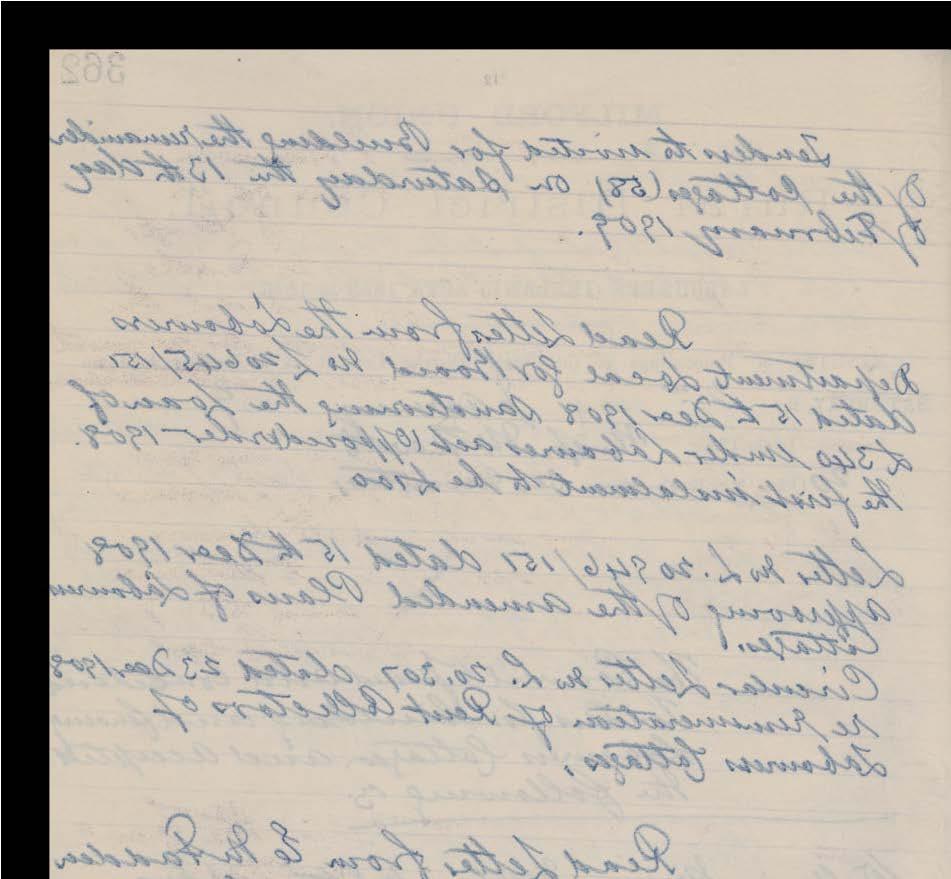 362
Tenders to invited for Building the remainder
of the Cottages (58) on Saturday the 13th day
of February 1909.
Read Letter from the Labourers
Department Local Gov Board No L 20645/151
dated 15th Decr 1908 Sanctioning the Loan of
£340 under Labourers act (Opposed) order 1908.
the first instalment to be £100
Letter No L. 20846/151 dated 15th Decr 1908
approving of the amended Plans of Labourers
Cottages.
Circular Letter No L. 20,307 dated 23 Decr 1908
re remuneration of Rent Collectors of
Labourers Cottages,
Read Letter from E McFadden